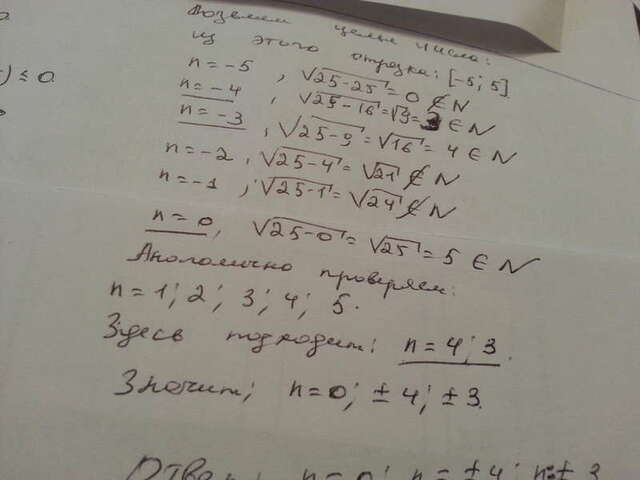 ) ≤ 0
Возьмем целые числа:
из этого отрезка: [-5; 5]
n = -5 , √25-25 = 0 ∉ N
n = -4 , √25-16 = √9 = 3 ∈ N
n = -3 , √25-9 = √16 = 4 ∈ N
n = -2, √25-4 = √21 ∉ N
n = -1 , √25-1 = √24 ∉ N
n = 0, √25-0 = √25 = 5 ∈ N
Аналогично проверяем:
n = 1; 2; 3; 4; 5.
Здесь подходит: n = 4; 3.
Значит; n = 0; ± 4; ± 3.
Ответ: n = 0; n = ± 4; n = ± 3